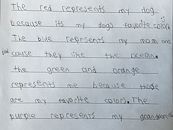 The red represents my dog
because its my dogs favorite color.
The blue reprsents my mom
cause they like the ocean.
the green and orange
represents me because those
are my favorite colors. The
purple represents my grandma